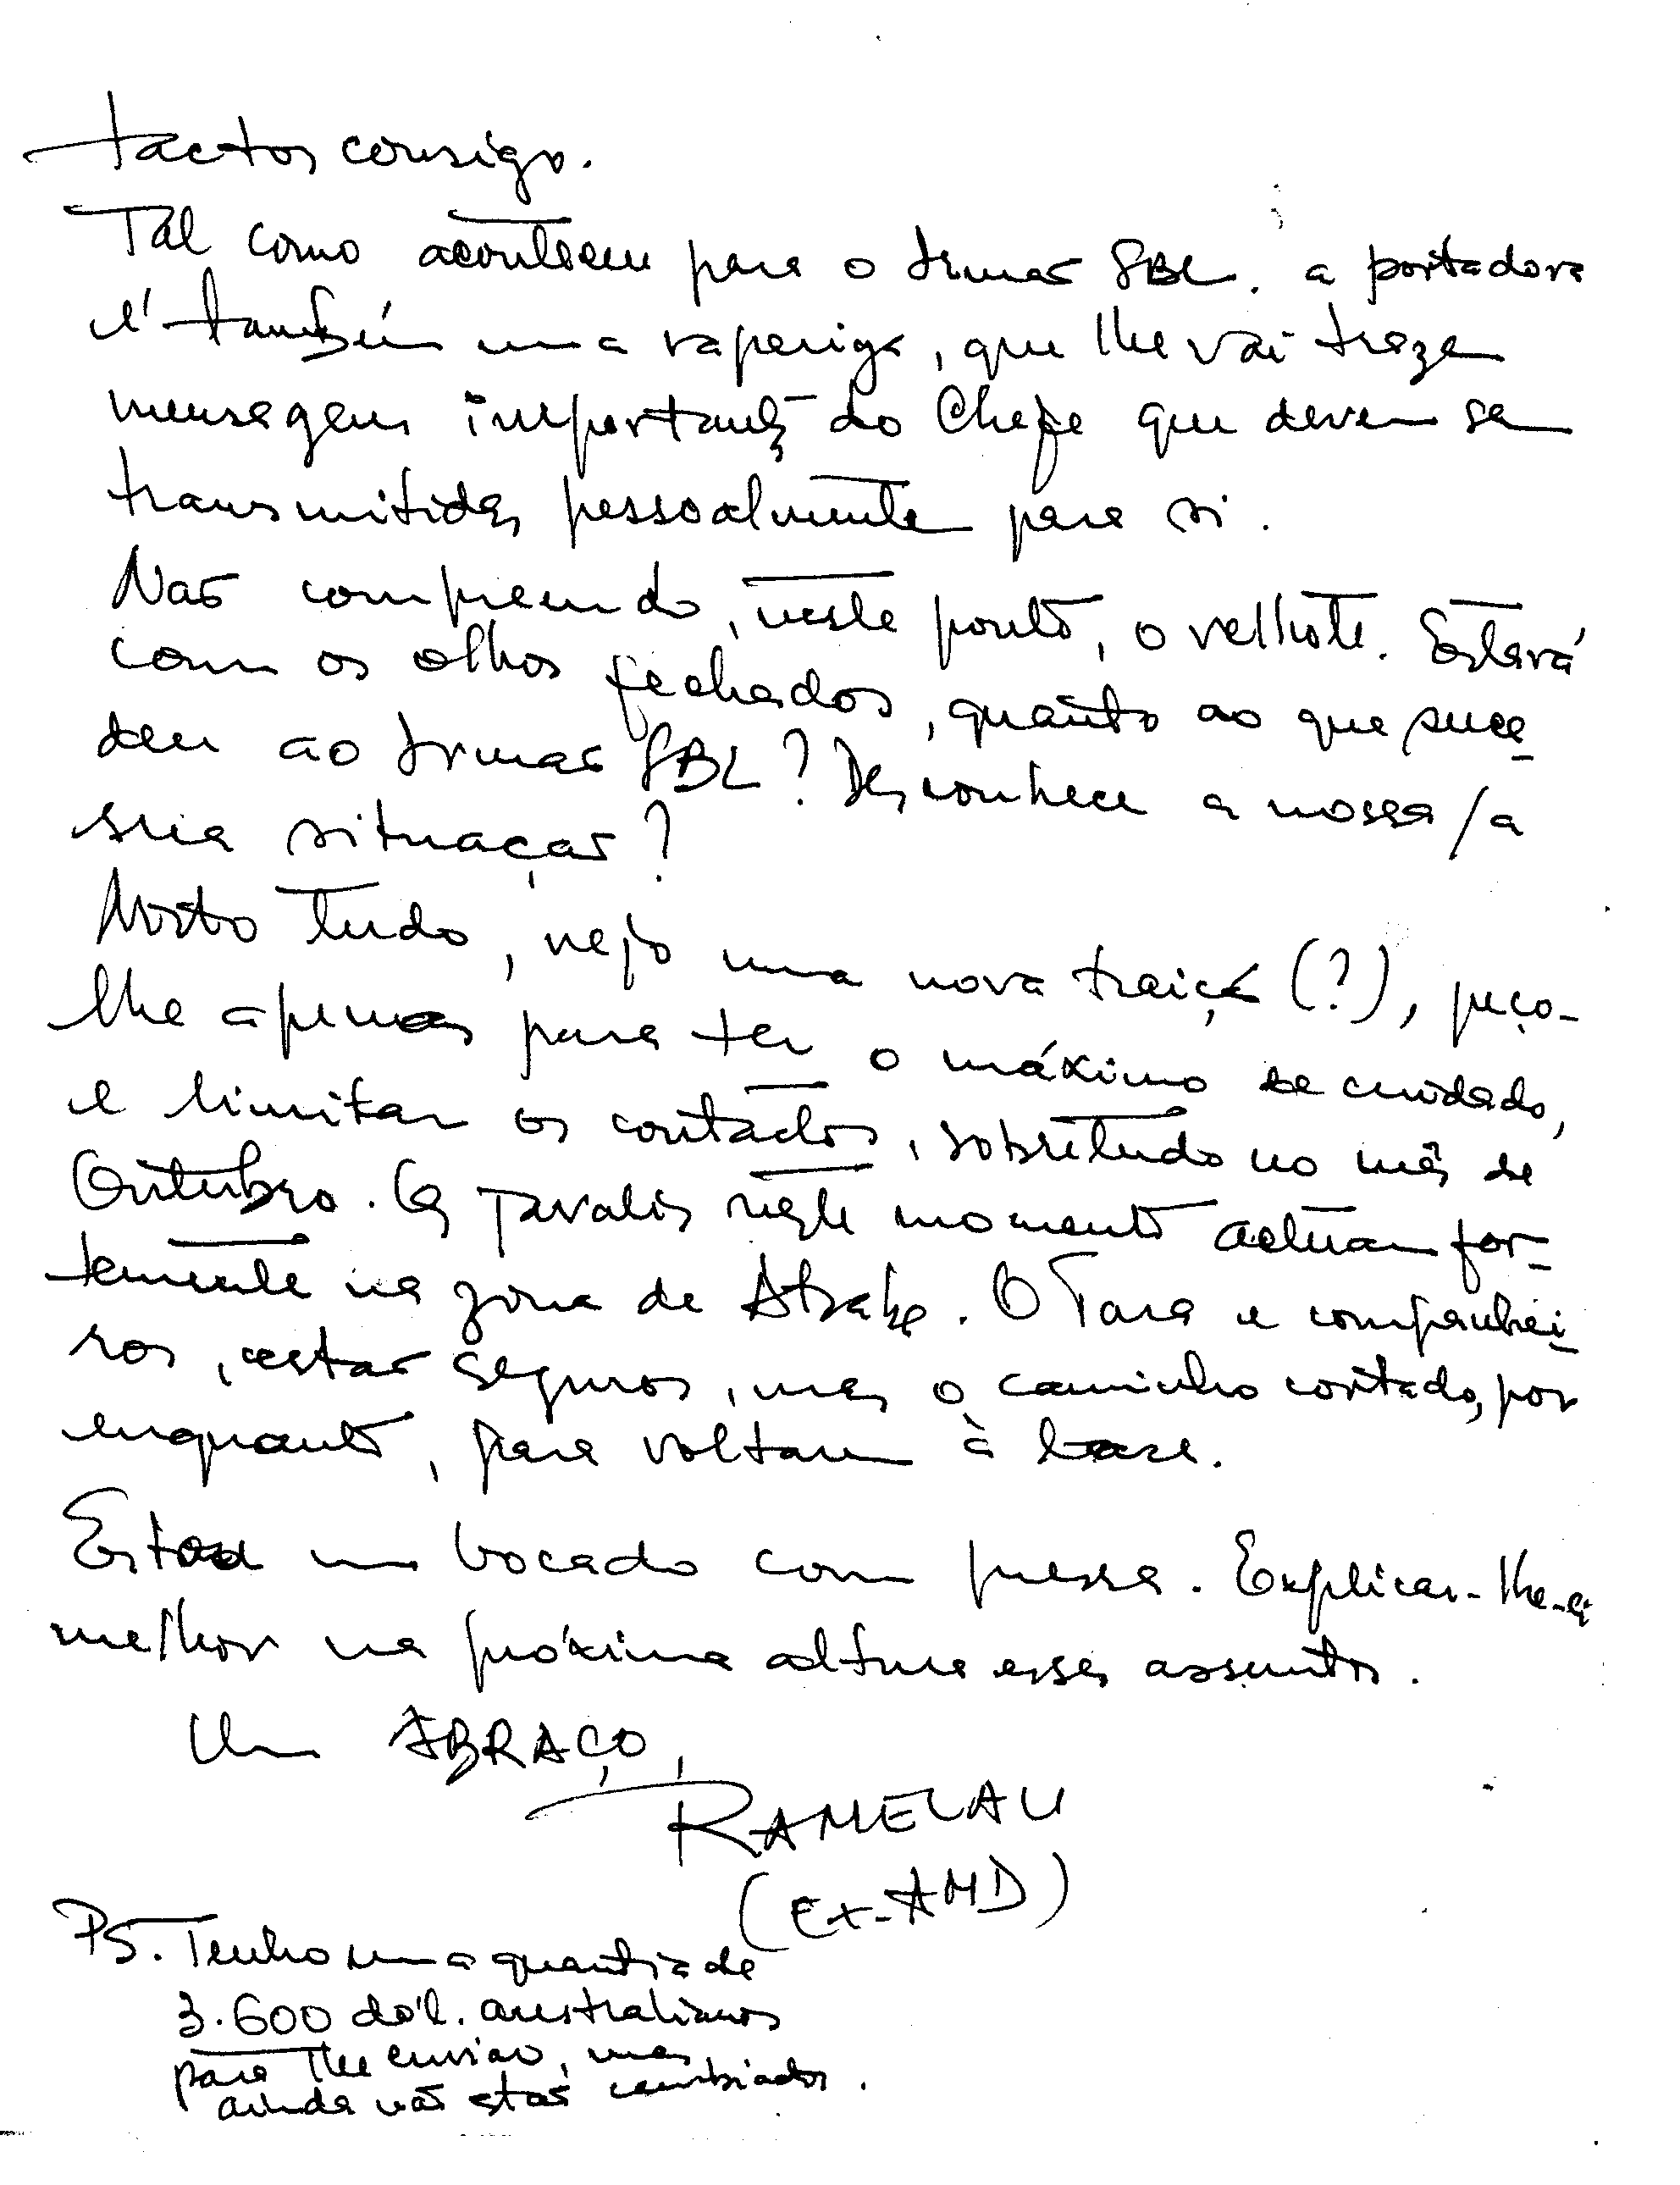 tactos consigo.
Tal como aconteceu para o Irmão SBL. a portadora
é também uma rapariga, que lhe vai trazer
mensagens importantes do Chefe que devem ser
transmitidas pessoalmente para si.
Não compreendo, neste ponto, o velhote. Estará
com os olhos fechados, quanto ao que suce-
deu ao Irmão SBL? Desconhece a nossa/a
sua situação?
Nisto tudo, vejo uma nova traição (?), peço-
lhe apenas para ter o máximo de cuidado,
e limitar os contactos, sobretudo no mês de
Outubro. Os neste momento actuam for-
temente na zona de Atsabe. O Tara e companhei-
ros, estão seguros, mas o caminho cortado, por
enquanto, para voltarem à base.
Estou um bocado com pressa. Explicar-lhe-ei
melhor na próxima altura esses assuntos.
Um ABRAÇO,
RAMELAU
(Ex-AMD)
PS. Tenho uma quantia de
3.600 dól. australianos
para lhe enviar, mas
ainda não estão cambiados.